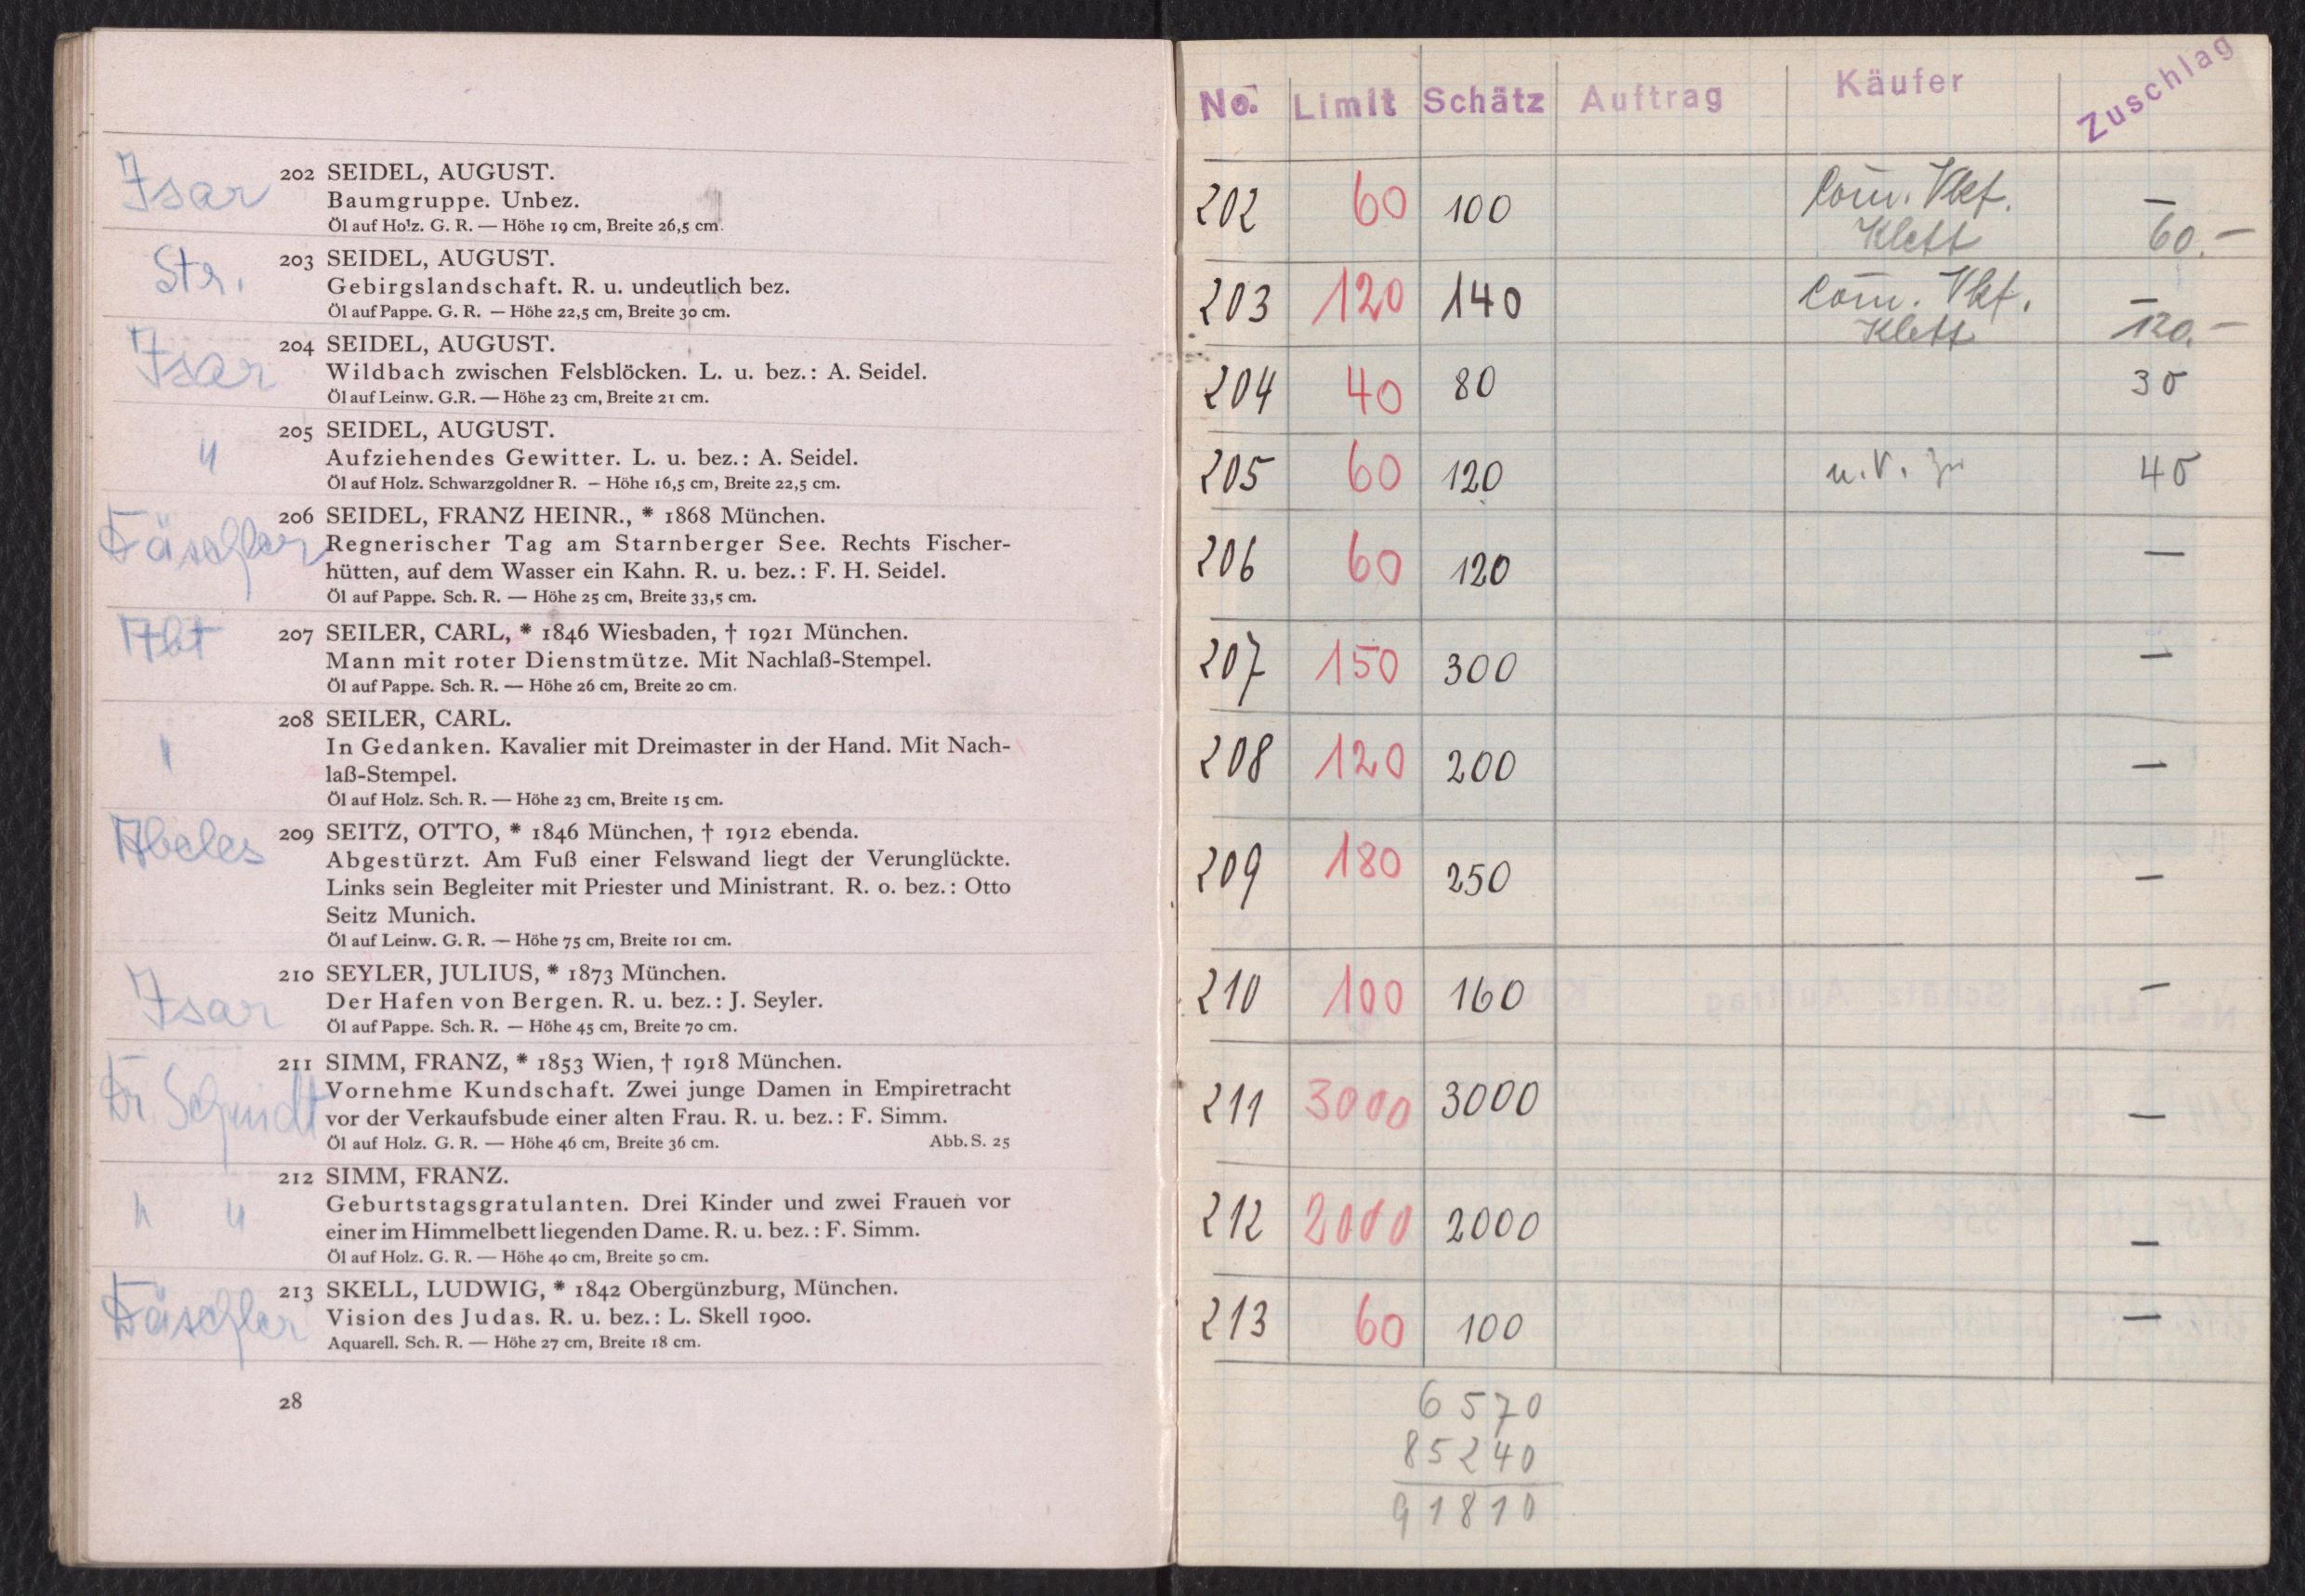 Isar
202 SEIDEL, AUGUST.
Baumgruppe. Unbez.
Öl auf Holz. G. R. — Höhe 19 cm, Breite 26,5 cm.
Str.
203 SEIDEL, AUGUST.
Gebirgslandschaft. R. u. undeutlich bez.
Öl auf Pappe. G. R. — Höhe 22,5 cm, Breite 30 cm.
Isar
204 SEIDEL, AUGUST.
Wildbach zwischen Felsblöcken. L. u. bez.: A. Seidel.
Öl auf Leinw. G.R. — Höhe 23 cm, Breite 21 cm.
"
205 SEIDEL, AUGUST.
Aufziehendes Gewitter. L. u. bez.: A. Seidel.
Öl auf Holz. Schwarzgoldner R. — Höhe 16,5 cm, Breite 22,5 cm.
206 SEIDEL, FRANZ HEINR., * 1868 München.
Regnerischer Tag am Starnberger See. Rechts Fischer-
hütten, auf dem Wasser ein Kahn. R. u. bez.: F. H. Seidel.
Öl auf Pappe. Sch. R. — Höhe 25 cm, Breite 33,5 cm.
Abt
207 SEILER, CARL, * 1846 Wiesbaden, † 1921 München.
Mann mit roter Dienstmütze. Mit Nachlaß-Stempel.
Öl auf Pappe. Sch. R. — Höhe 26 cm, Breite 20 cm.
"
208 SEILER, CARL.
In Gedanken. Kavalier mit Dreimaster in der Hand. Mit Nach-
laß-Stempel.
Öl auf Holz. Sch. R. — Höhe 23 cm, Breite 15 cm.
Abeles
209 SEITZ, OTTO, * 1846 München, † 1912 ebenda.
Abgestürzt. Am Fuß einer Felswand liegt der Verunglückte.
Links sein Begleiter mit Priester und Ministrant. R. o. bez.: Otto
Seitz Munich.
Öl auf Leinw. G. R. — Höhe 75 cm, Breite 101 cm.
Isar
210 SEYLER, JULIUS, * 1873 München.
Der Hafen von Bergen. R. u. bez.: J. Seyler.
Öl auf Pappe. Sch. R. — Höhe 45 cm, Breite 70 cm.
Dr. Schmidt
211 SIMM, FRANZ, * 1853 Wien, † 1918 München.
Vornehme Kundschaft. Zwei junge Damen in Empiretracht
vor der Verkaufsbude einer alten Frau. R. u. bez.: F. Simm.
Öl auf Holz. G. R. — Höhe 46 cm, Breite 36 cm. Abb. S. 25
" "
212 SIMM, FRANZ.
Geburtstagsgratulanten. Drei Kinder und zwei Frauen vor
einer im Himmelbett liegenden Dame. R. u. bez.: F. Simm.
Öl auf Holz. G. R. — Höhe 40 cm, Breite 50 cm.
213 SKELL, LUDWIG, * 1842 Obergünzburg, München.
Vision des Judas. R. u. bez.: L. Skell 1900.
Aquarell. Sch. R. — Höhe 27 cm, Breite 18 cm.
28
No. Limit Schätz Auftrag Käufer Zuschlag
202 60 100 Com. Vkf. —
Klett 60.—
203 120 140 Com. Vkf. —
Klett 120.—
204 40 80 30
205 60 120 u. V. zu 40
206 60 120 —
207 150 300 —
208 120 200 —
209 180 250 —
210 100 160 —
211 3000 3000 —
212 2000 2000 —
213 60 100 —
6570
85240
91810